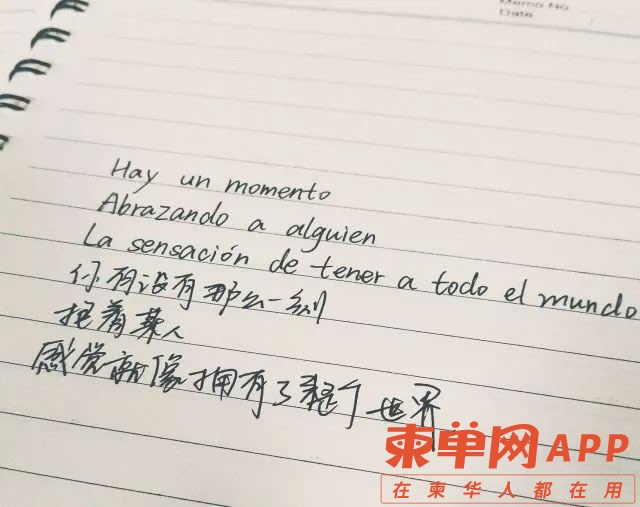 Memo No.
Date
Hay un momento
Abrazando a alguien
La sensación de tener a todo el mundo
你有没有那么一刻
抱着某人
感觉就像拥有了整个世界
柬单网APP
在柬华人都在用